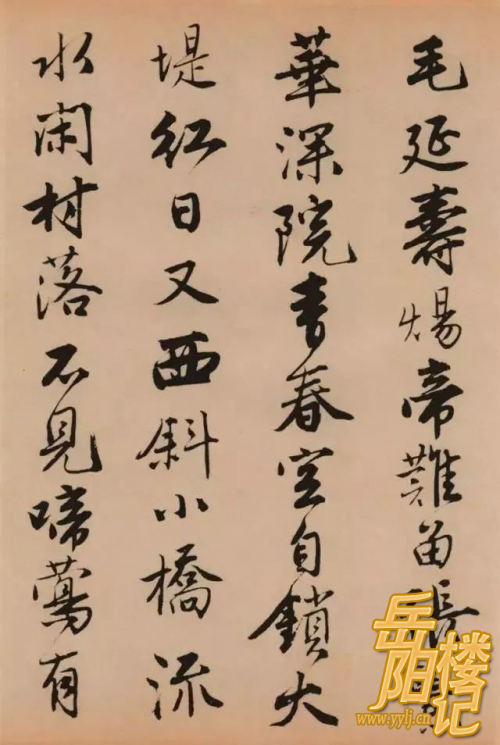 毛延壽煬帝難留張
華深院青春空自鎖大
堤紅日又西斜小橋流
水閑村落不見啼鶯有
岳阳楼记
www.yylj.cn